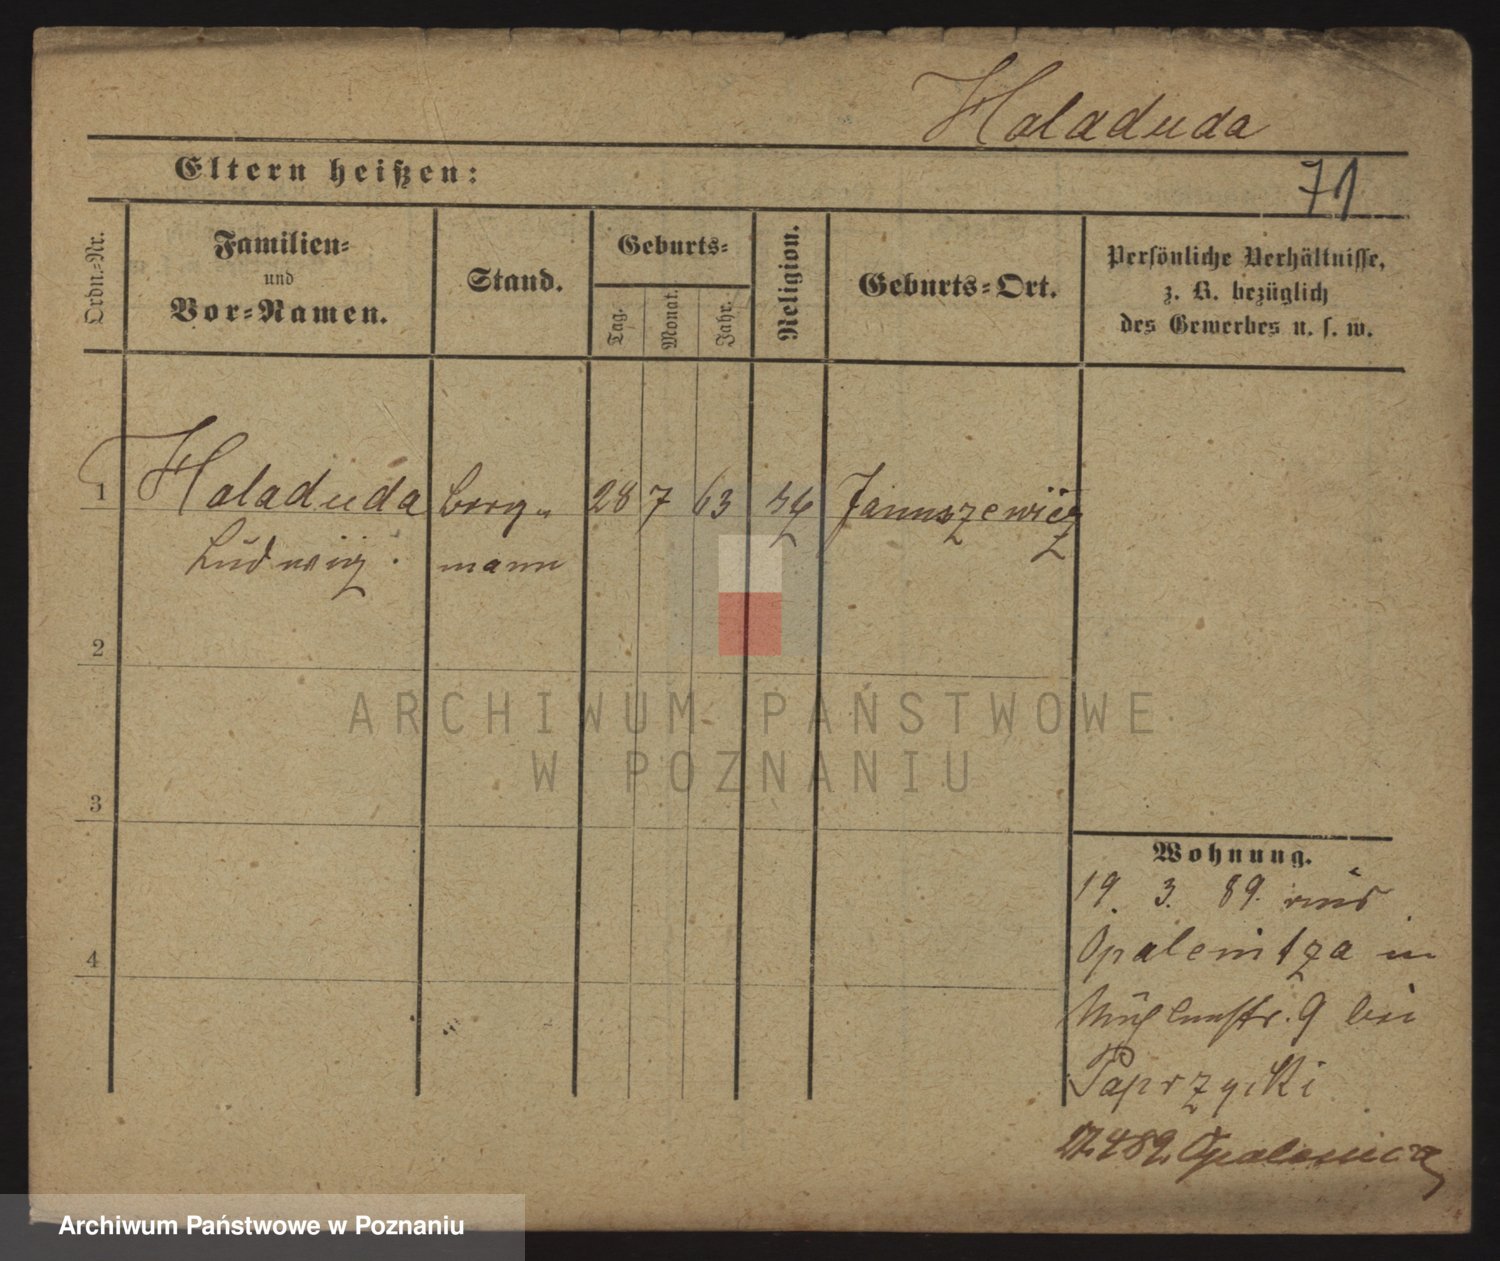 Haladuda
Eltern heißen:
71
Ordn.-Nr.
Familien-
und
Vor-Namen.
Stand.
Geburts-
Tag.
Monat.
Jahr.
Religion.
Geburts-Ort.
Persönliche Verhältnisse,
z. B. bezüglich
des Gewerbes u. s. w.
1 Haladuda Berg- 28 7 63 Januszewicz
Ludwig. mann
2
ARCHIWUM PAŃSTWOWE
W POZNANIU
3
Wohnung.
19. 3. 89. aus
Opalenitza in
Mühlenstr. 9 bei
Paprzycki
4
17.4 89. Opalenica
Archiwum Państwowe w Poznaniu